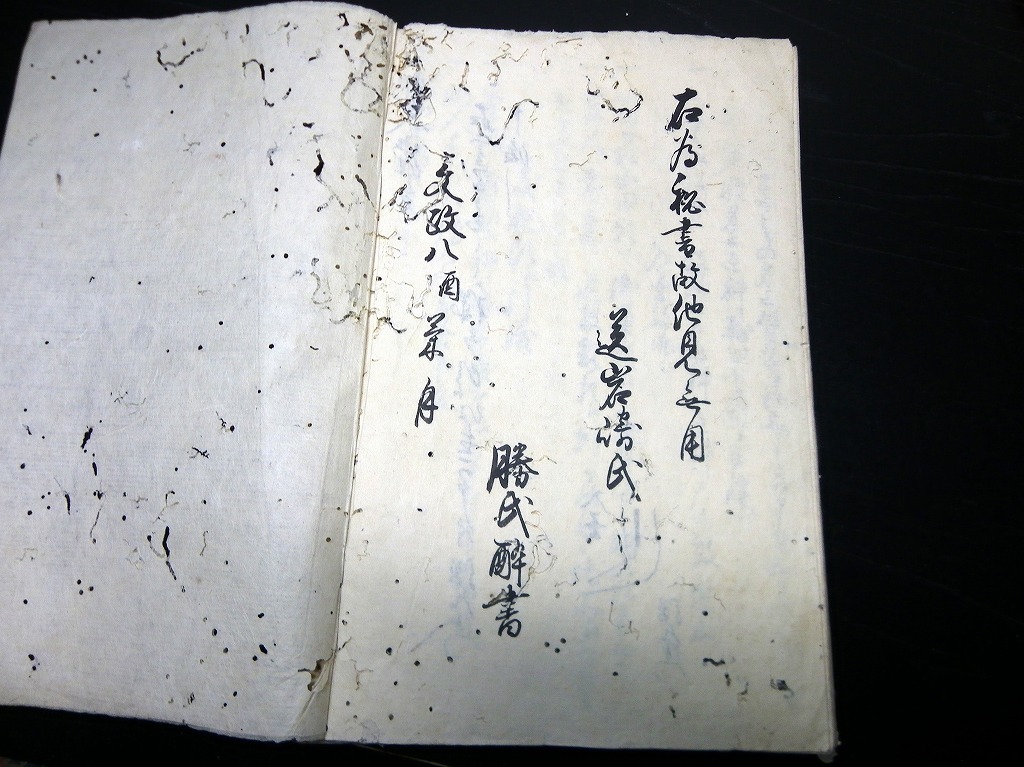 右為秘書故他見無用
送岩嶹氏
勝氏酔書
文政八酉菊月